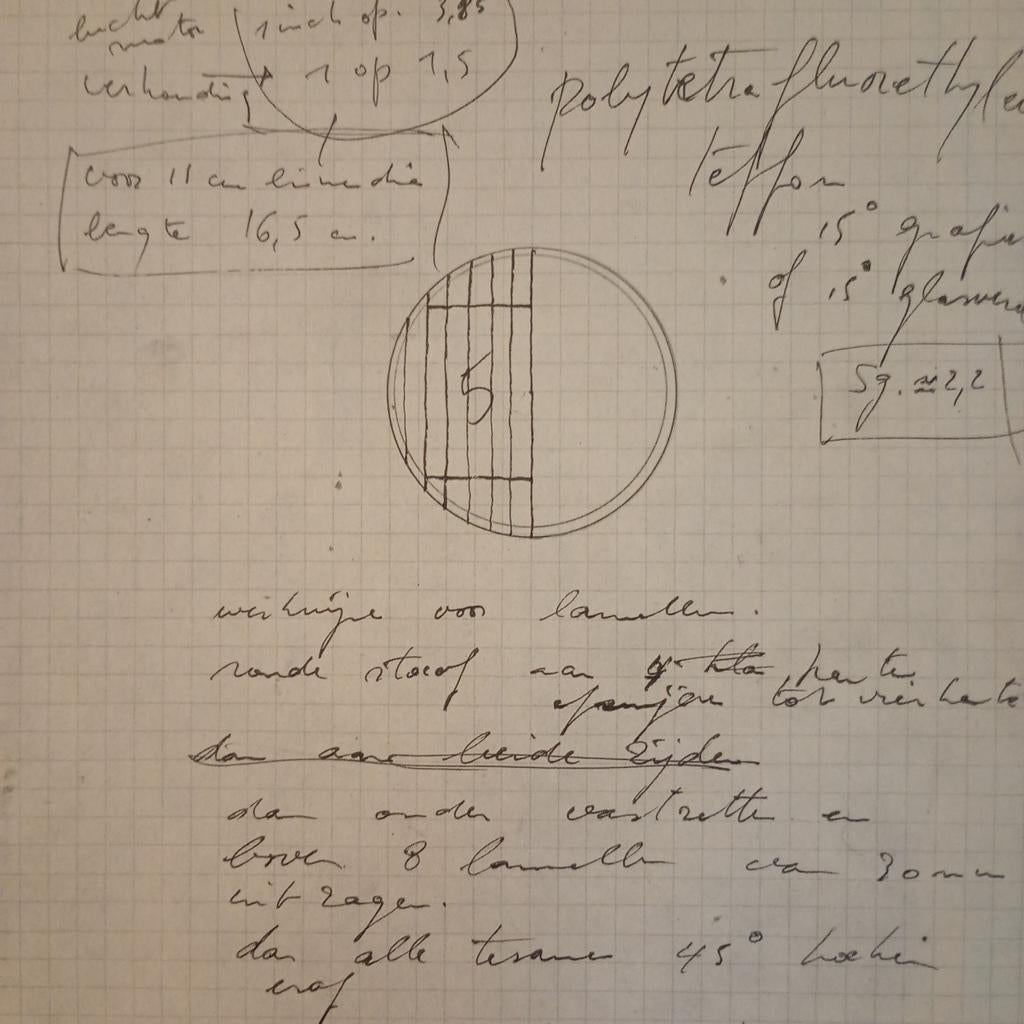 lucht
motor
verhouding
1 inch op. 3,85
1 op 1,5
voor 11 cm binnendia
lengte 16,5 cm.
polytetrafluorethyle
teflon
15° grafie
of 15° glasve
Sg. ≈ 2,2
5
werkwijze voor lamellen.
ronde staaf aan 4 kanten
afzagen tot vierkante
dan aan beide zijden
dan onder vastzetten en
boven 8 lamellen van 30 mm
uit zagen.
dan alle tesamen 45° hoeken
eraf